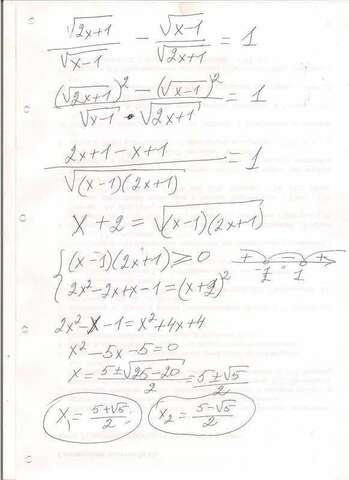 √(2x+1)/√(x-1) - √(x-1)/√(2x+1) = 1
((√(2x+1))² - (√(x-1))²)/(√(x-1) • √(2x+1)) = 1
(2x+1-x+1)/√((x-1)(2x+1)) = 1
x+2 = √((x-1)(2x+1))
{ (x-1)(2x+1) ⩾ 0 + -1/2 - 1 +
2x²-2x+x-1 = (x+2)²
2x²-x-1 = x²+4x+4
x²-5x-5=0
x = (5±√(25-20))/2 = (5±√5)/2
x₁ = (5+√5)/2; x₂ = (5-√5)/2